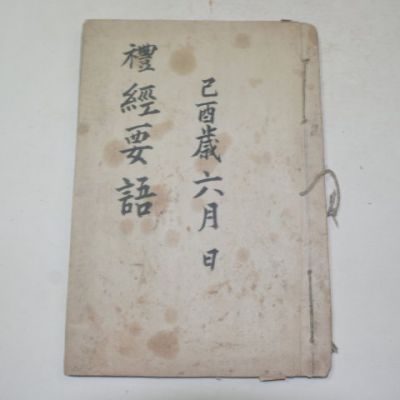 己酉歲六月 日
禮經要語